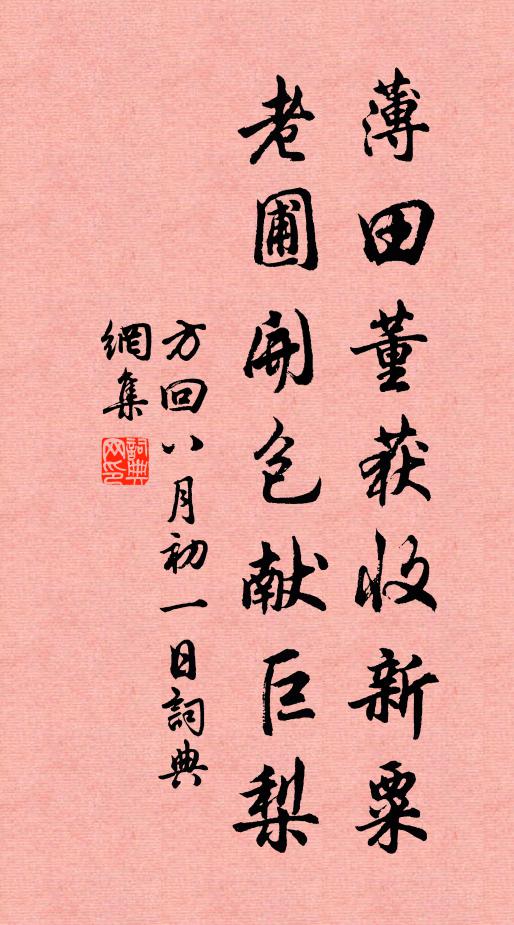 薄田董获收新粟
老圃開包献巨梨
方回八月初一日詞典
網集
詞典
网印